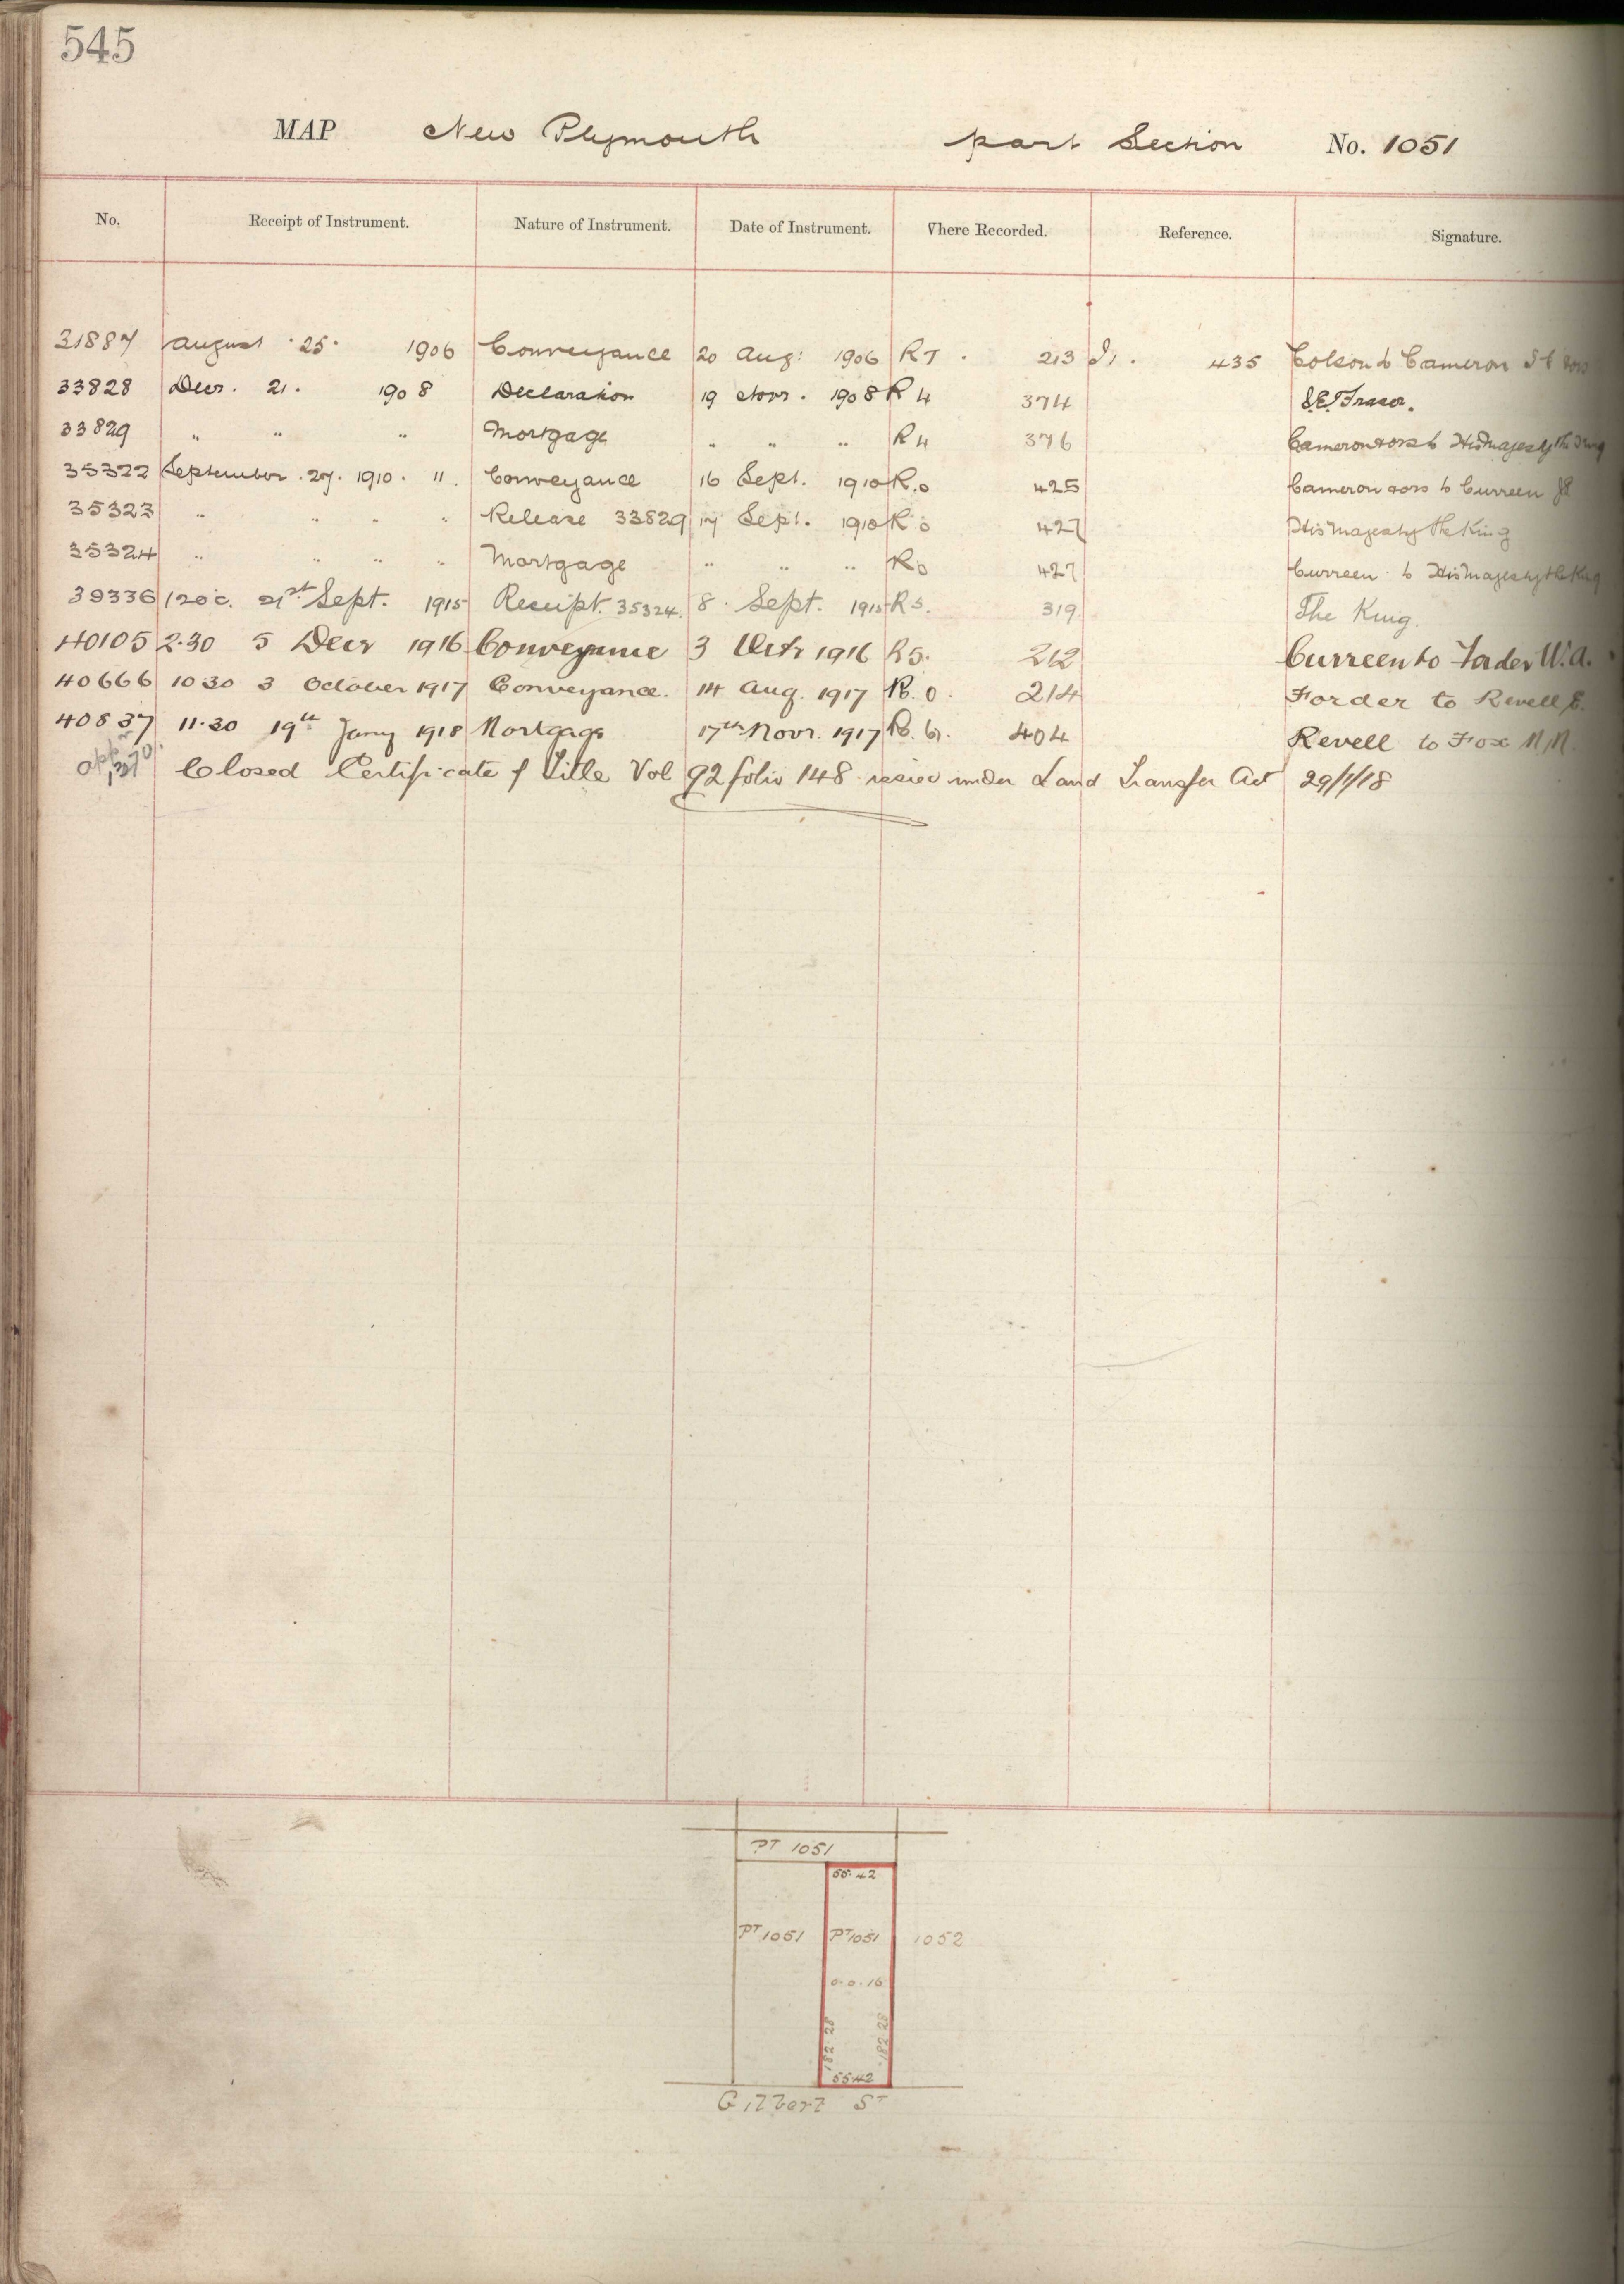 545
MAP New Plymouth part Section No. 1051
No. Receipt of Instrument. Nature of Instrument. Date of Instrument. Where Recorded. Reference. Signature.
31887 August 25. 1906 Conveyance 20 Aug: 1906 R7. 213 435 Colson to Cameron
33828 Decr. 21. 1908 Declaration 19 Novr. 1908 R4 374 Fraser.
33829 " " " Mortgage " " " R4 376 Cameron & ors to His Majesty the King
35322 September. 27. 1910. 11. Conveyance 16 Sept. 1910 R.0 425 Cameron & ors to Curreen
35323 " " " " Release 33829 17 Sept. 1910 R0 427 His Majesty the King
35324 " " " " Mortgage " " " R0 427 Curreen to His Majesty the King
39336 12 o'c. 21st Sept. 1915 Receipt. 35324. 8. Sept. 1915 R5. 319. The King.
40105 2.30 5 Decr 1916 Conveyance 3 Octr 1916 R5. 212 Curreen to Forder W.A.
40666 10 30 3 October 1917 Conveyance. 14 Aug. 1917 R. 0. 214 Forder to Revell E.
40837 11.30 19th Jany 1918 Mortgage 17th Novr. 1917 R. 6. 404 Revell to Fox M.M.
Closed Certificate of Title Vol 92 folio 148 issued under Land Transfer Act 29/1/18
PT 1051
55.42
PT 1051 PT 1051 1052
0.0.16
182.28 182.28
55.42
Gilbert ST